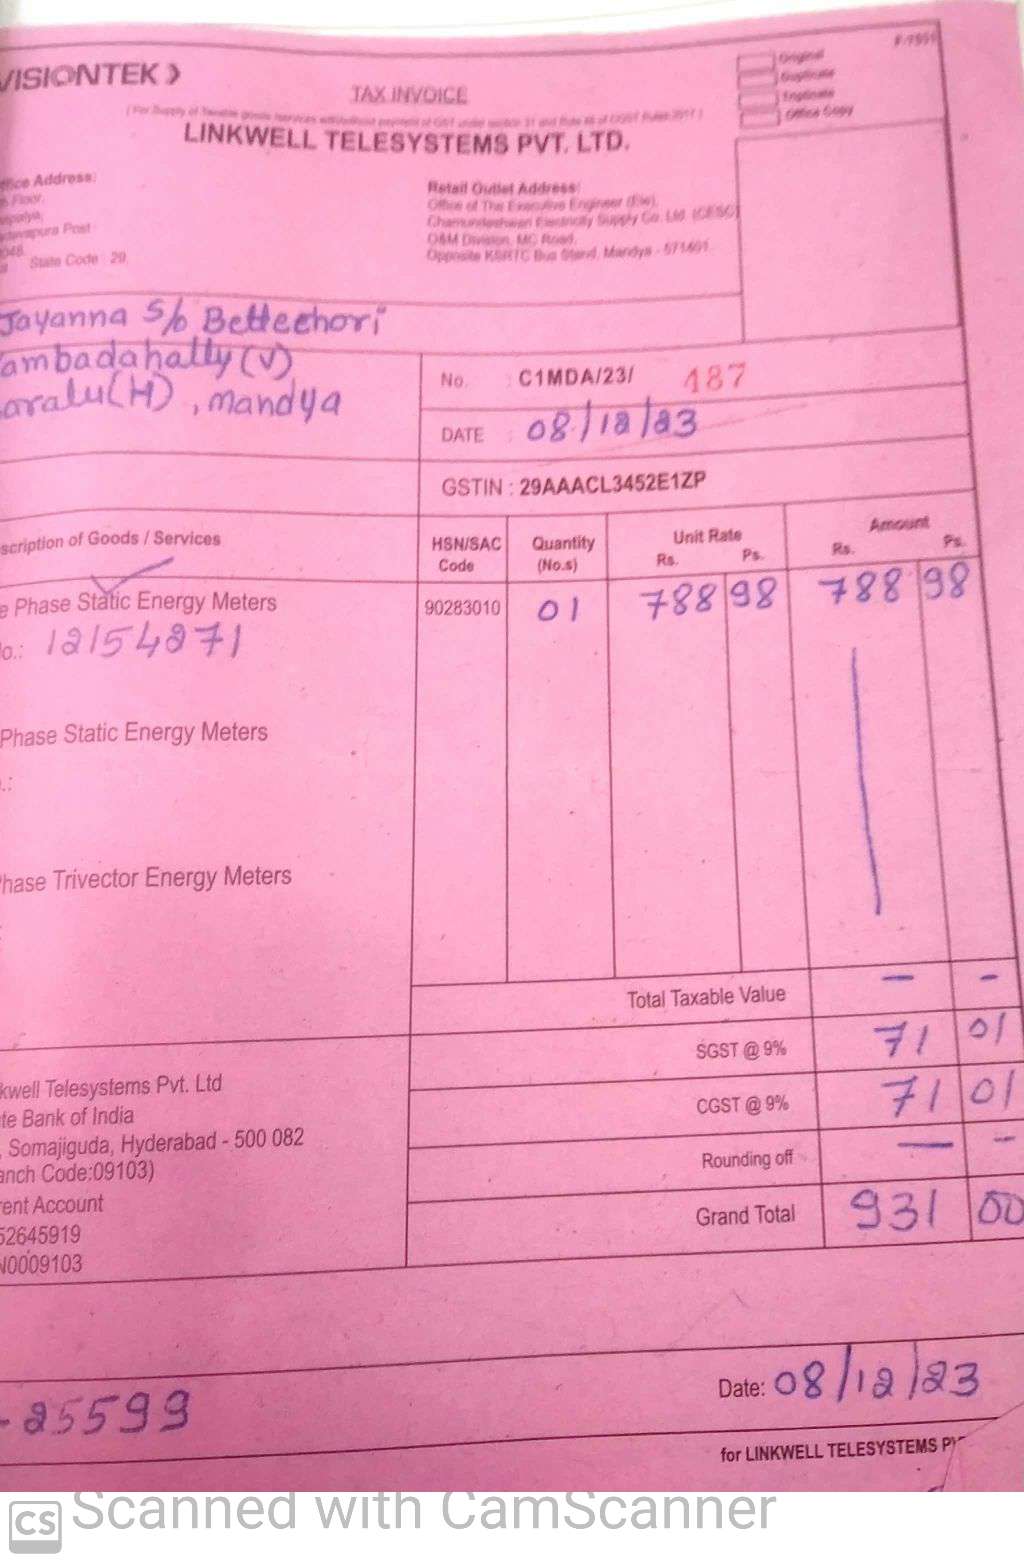 VISIONTEK
TAX INVOICE
Original
Duplicate
Triplicate
Office Copy
(For Supply of Taxable goods /services with/without payment of GST under section 31 and Rule 46 of CGST Rules 2017)
LINKWELL TELESYSTEMS PVT. LTD.
ffice Address:
Floor,
evapura Post
048.
State Code : 29.
Retail Outlet Address:
Office of The Executive Engineer (Ele),
Chamundeshwari Electricity Supply Co. Ltd. (CESC)
O&M Division, MC Road,
Opposite KSRTC Bus Stand, Mandya - 571401.
Jayanna S/o Betteehori
ambadahally (V)
aralu(H), mandya
No. : C1MDA/23/ 487
DATE : 08/12/23
GSTIN : 29AAACL3452E1ZP
scription of Goods / Services
HSN/SAC Code
Quantity (No.s)
Unit Rate Rs. Ps.
Amount Rs. Ps.
e Phase Static Energy Meters 90283010 01 788 98 788 98
o.: 12154271
Phase Static Energy Meters
.:
hase Trivector Energy Meters
:
Total Taxable Value — -
SGST @ 9% 71 01
CGST @ 9% 71 01
Rounding off — -
Grand Total 931 00
kwell Telesystems Pvt. Ltd
te Bank of India
, Somajiguda, Hyderabad - 500 082
anch Code:09103)
rent Account
52645919
N0009103
-25599
Date: 08/12/23
for LINKWELL TELESYSTEMS PV
CS Scanned with CamScanner